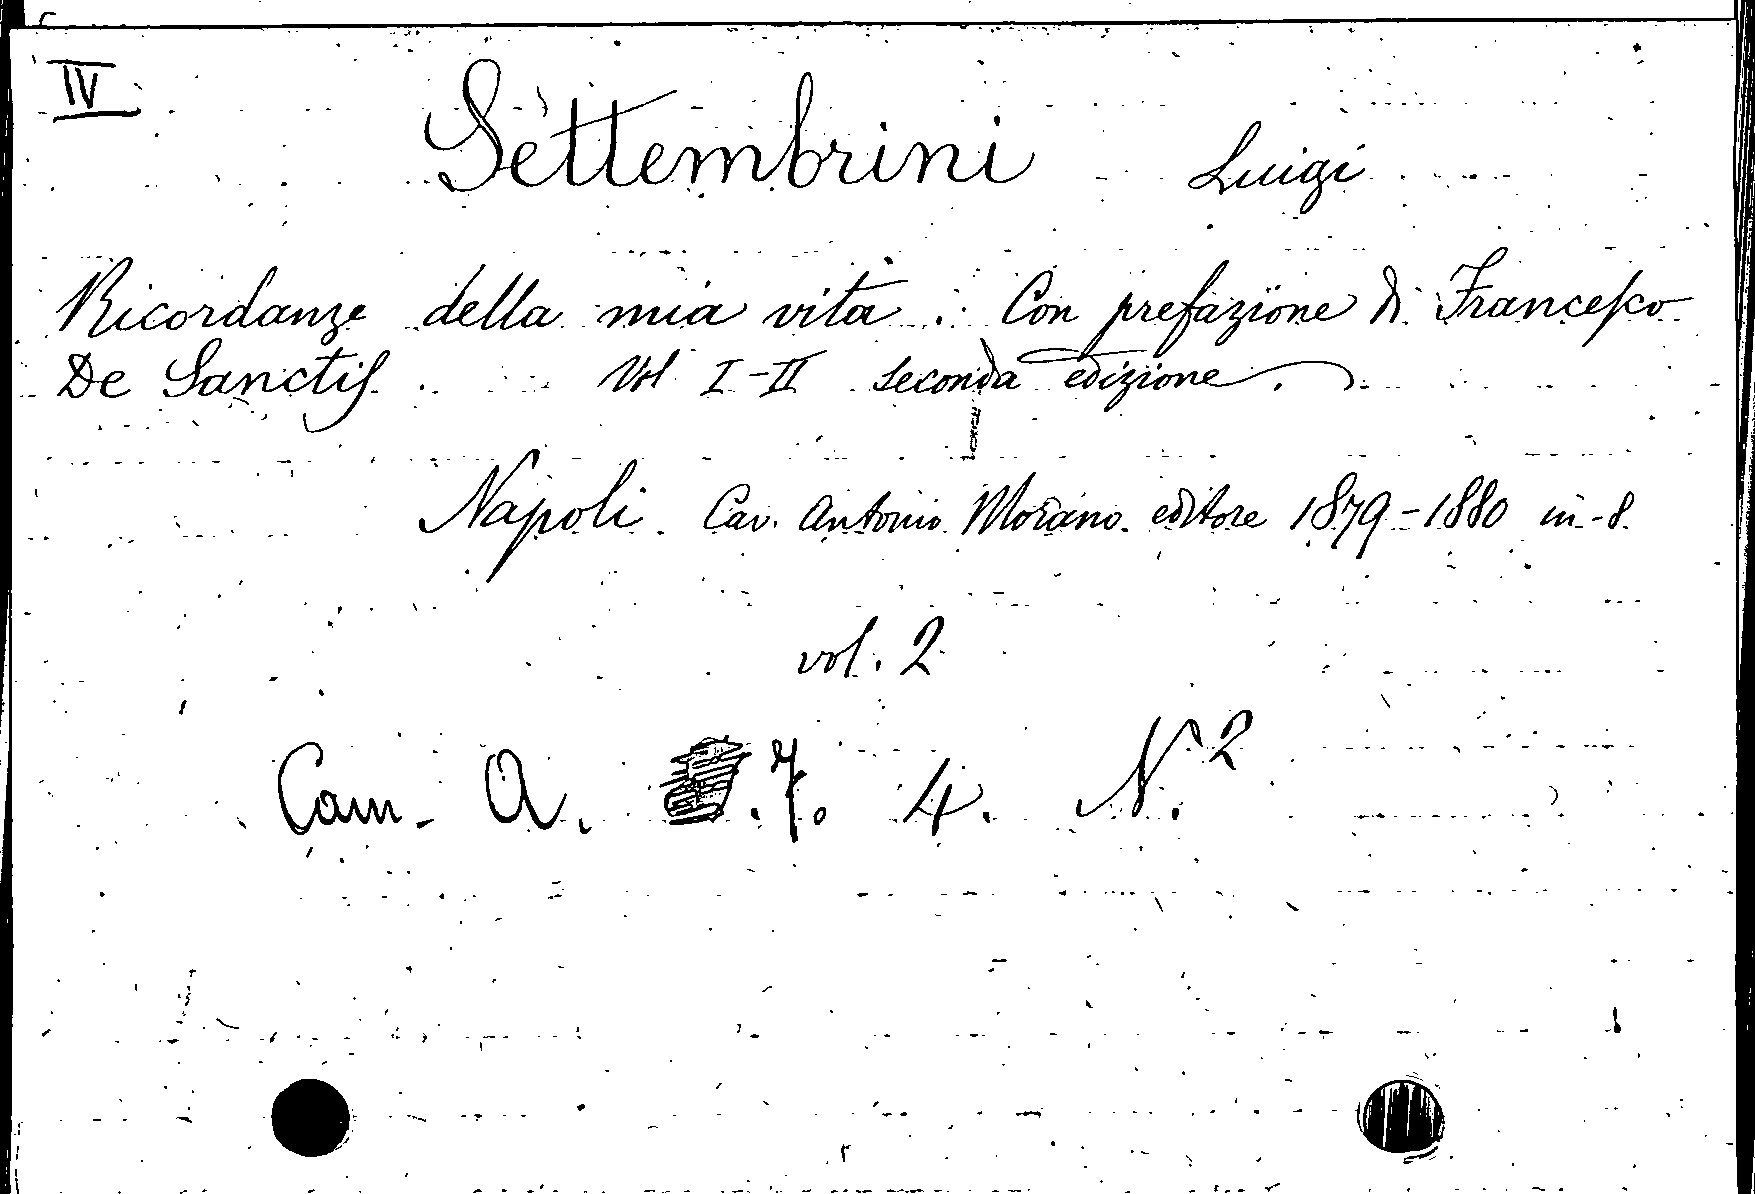 IV
Settembrini Luigi
Ricordanze della mia vita. Con prefazione di Francesco
De Sanctis. Vol I-II seconda edizione.
Napoli. Cav. Antonio Morano. editore 1879-1880 in-8.
vol. 2
Cam. A. 7. 4. N. 2